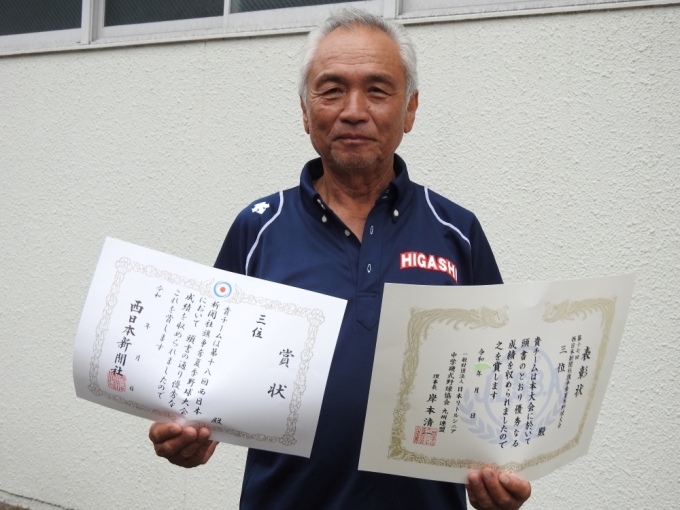 HIGASHI
賞状
三位
殿
貴チームは第十八回西日本
新聞社旗争奪夏季野球大会
において頭書の通り優秀な
成績を収められましたので
これを賞します
令和 年 月 日
西日本新聞社
表彰状
三位
殿
貴チームは本大会に於いて
頭書のとおり優秀なる
成績を収められましたので
之を賞します
令和 年 月 日
一般財団法人日本リトルシニア
中学硬式野球協会 九州連盟
理事長 岸本清